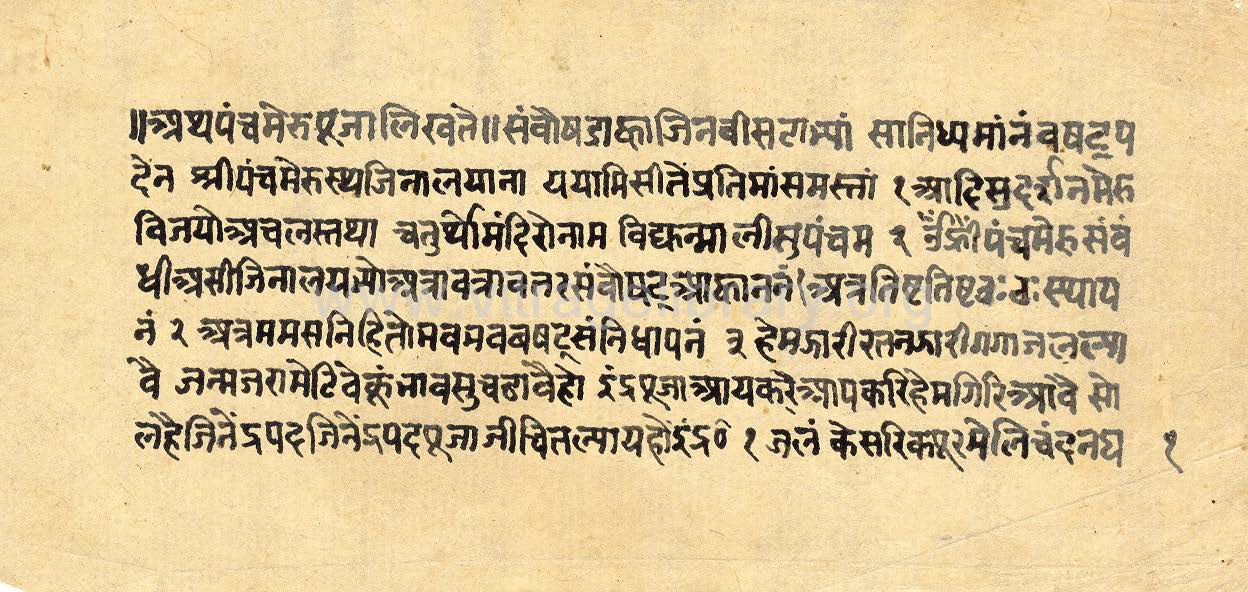 ॥अथपंचमेरुपूजालिखते॥संवौषडाह्वाजिनवीसटाभ्यां सानिध्यमांनंवषट्प
देन श्रीपंचमेरुस्थजिनालयाना ययामिसीतेंप्रतिमांसमस्तां १आदिसुदर्शनमेरु
विजयोअचलस्तथा चतुर्थोमंदिरोनाम विद्युन्मालीसुपंचम २ पंचमेरुसंबं
धीअसीजिनालयभ्योअत्रावत्रावतरसंवौषट्आह्वाननं१अत्रतिष्टतिष्टठःठःस्थाप
नं २ अत्रममसनिहितोमवमववषट्संनिधापनं ३ हेमजारीरतनजारीगगाजलल्या
वै जन्मजरामेटिवेकूंभावसुचढावैहो इंद्रपूजाआयकरैआपकरिहेमगिरिआवै सो
लहैजिनेंद्रपदजिनेंद्रपदपूजाजीचितल्पायहोइंद्र० १ जलं केसरिकपूरमेलिचंदनघ १
www.vitragelibrary.org